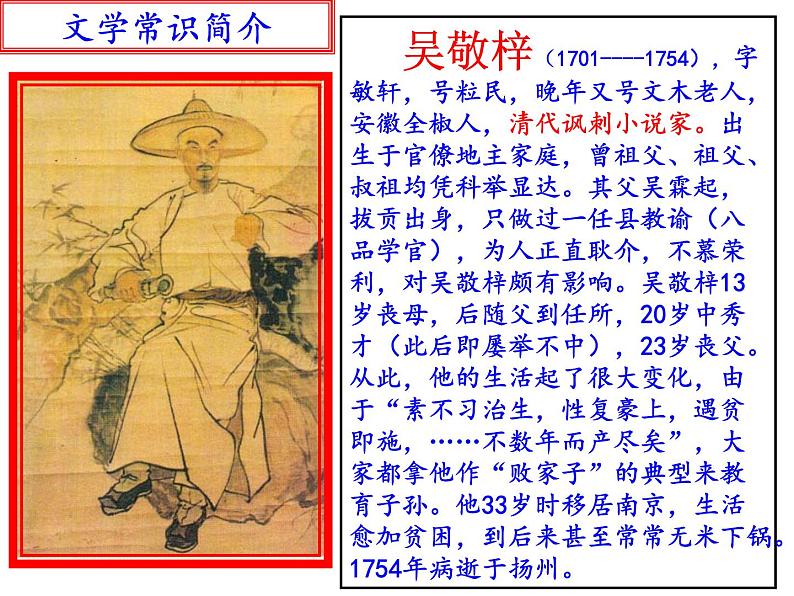 文学常识简介
吴敬梓（1701----1754），字
敏轩，号粒民，晚年又号文木老人，
安徽全椒人，清代讽刺小说家。出
生于官僚地主家庭，曾祖父、祖父、
叔祖均凭科举显达。其父吴霖起，
拔贡出身，只做过一任县教谕（八
品学官），为人正直耿介，不慕荣
利，对吴敬梓颇有影响。吴敬梓13
岁丧母，后随父到任所，20岁中秀
才（此后即屡举不中），23岁丧父。
从此，他的生活起了很大变化，由
于“素不习治生，性复豪上，遇贫
即施，……不数年而产尽矣”，大
家都拿他作“败家子”的典型来教
育子孙。他33岁时移居南京，生活
愈加贫困，到后来甚至常常无米下锅。
1754年病逝于扬州。